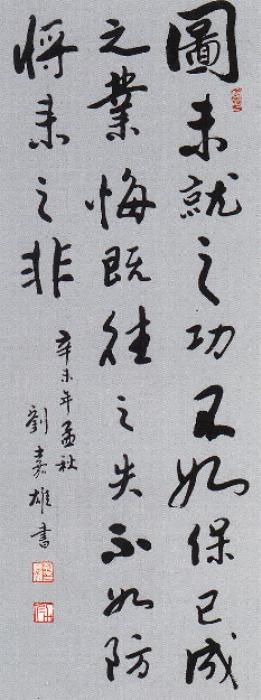 圖未就之功不如保已成
之業悔既往之失不如防
將來之非
辛未年孟秋
劉嘉雄書